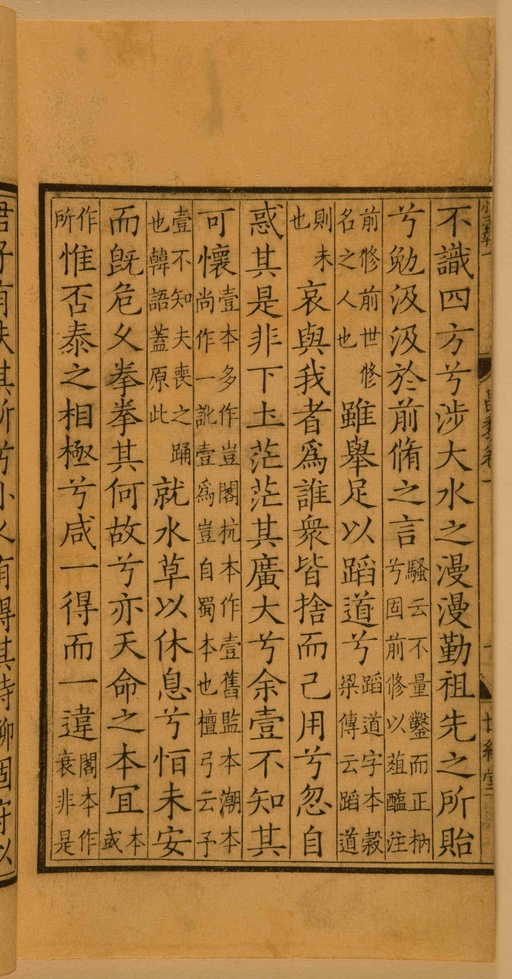 不識四方兮涉大水之漫漫勤祖先之所貽
兮勉汲汲於前脩之言騷云不量鑿而正枘兮固前修以葅醢注
前修前世修名之人也雖舉足以蹈道兮蹈道字本榖梁傳云蹈道
則未也哀與我者爲誰衆皆捨而己用兮忽自
惑其是非下土茫茫其廣大兮余壹不知其
可懷壹本多作豈閣杭本作壹舊監本潮本尚作一訛壹爲豈自蜀本也檀弓云予
壹不知夫喪之踊也韓語蓋原此就水草以休息兮恒未安
而既危久拳拳其何故兮亦天命之本冝本或
作所惟否泰之相極兮咸一得而一違閣本作衰非是